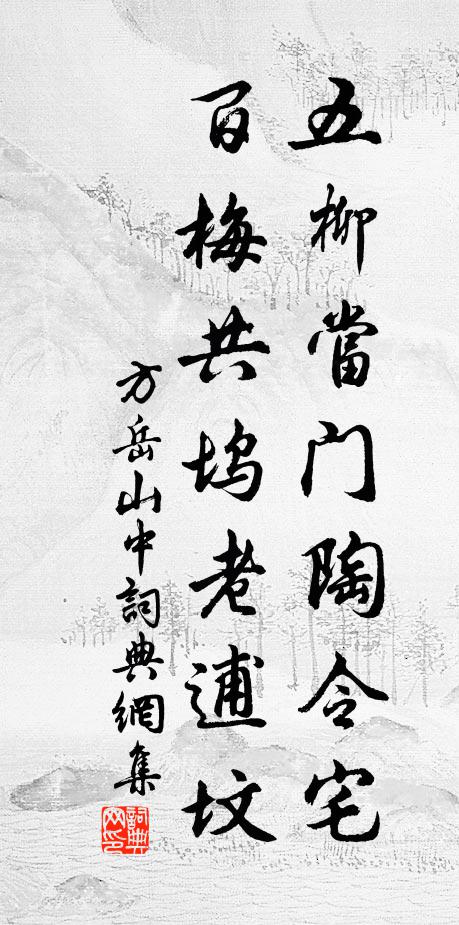 五柳當门陶令宅
百梅共坞老逋坟
方岳山中詞典網集
詞典网印